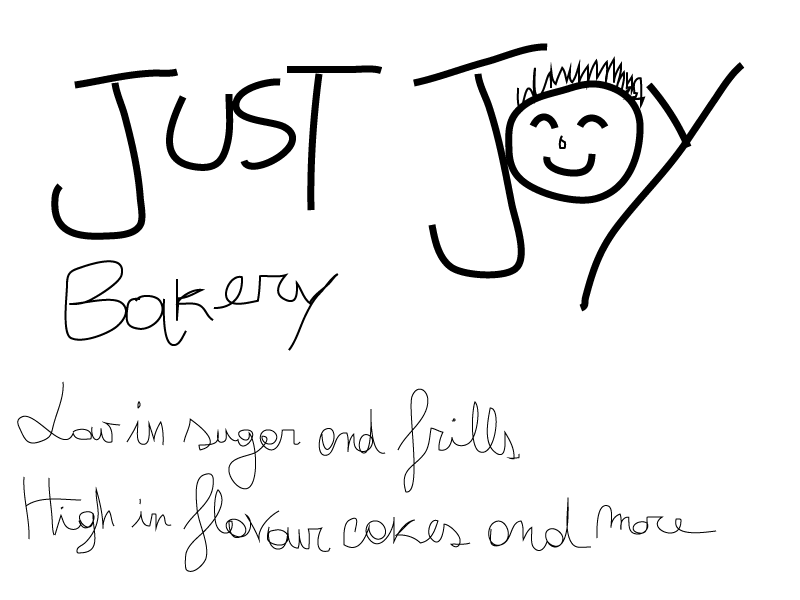 JUST JOY
Bakery
Low in sugar and frills
High in flavour cakes and more